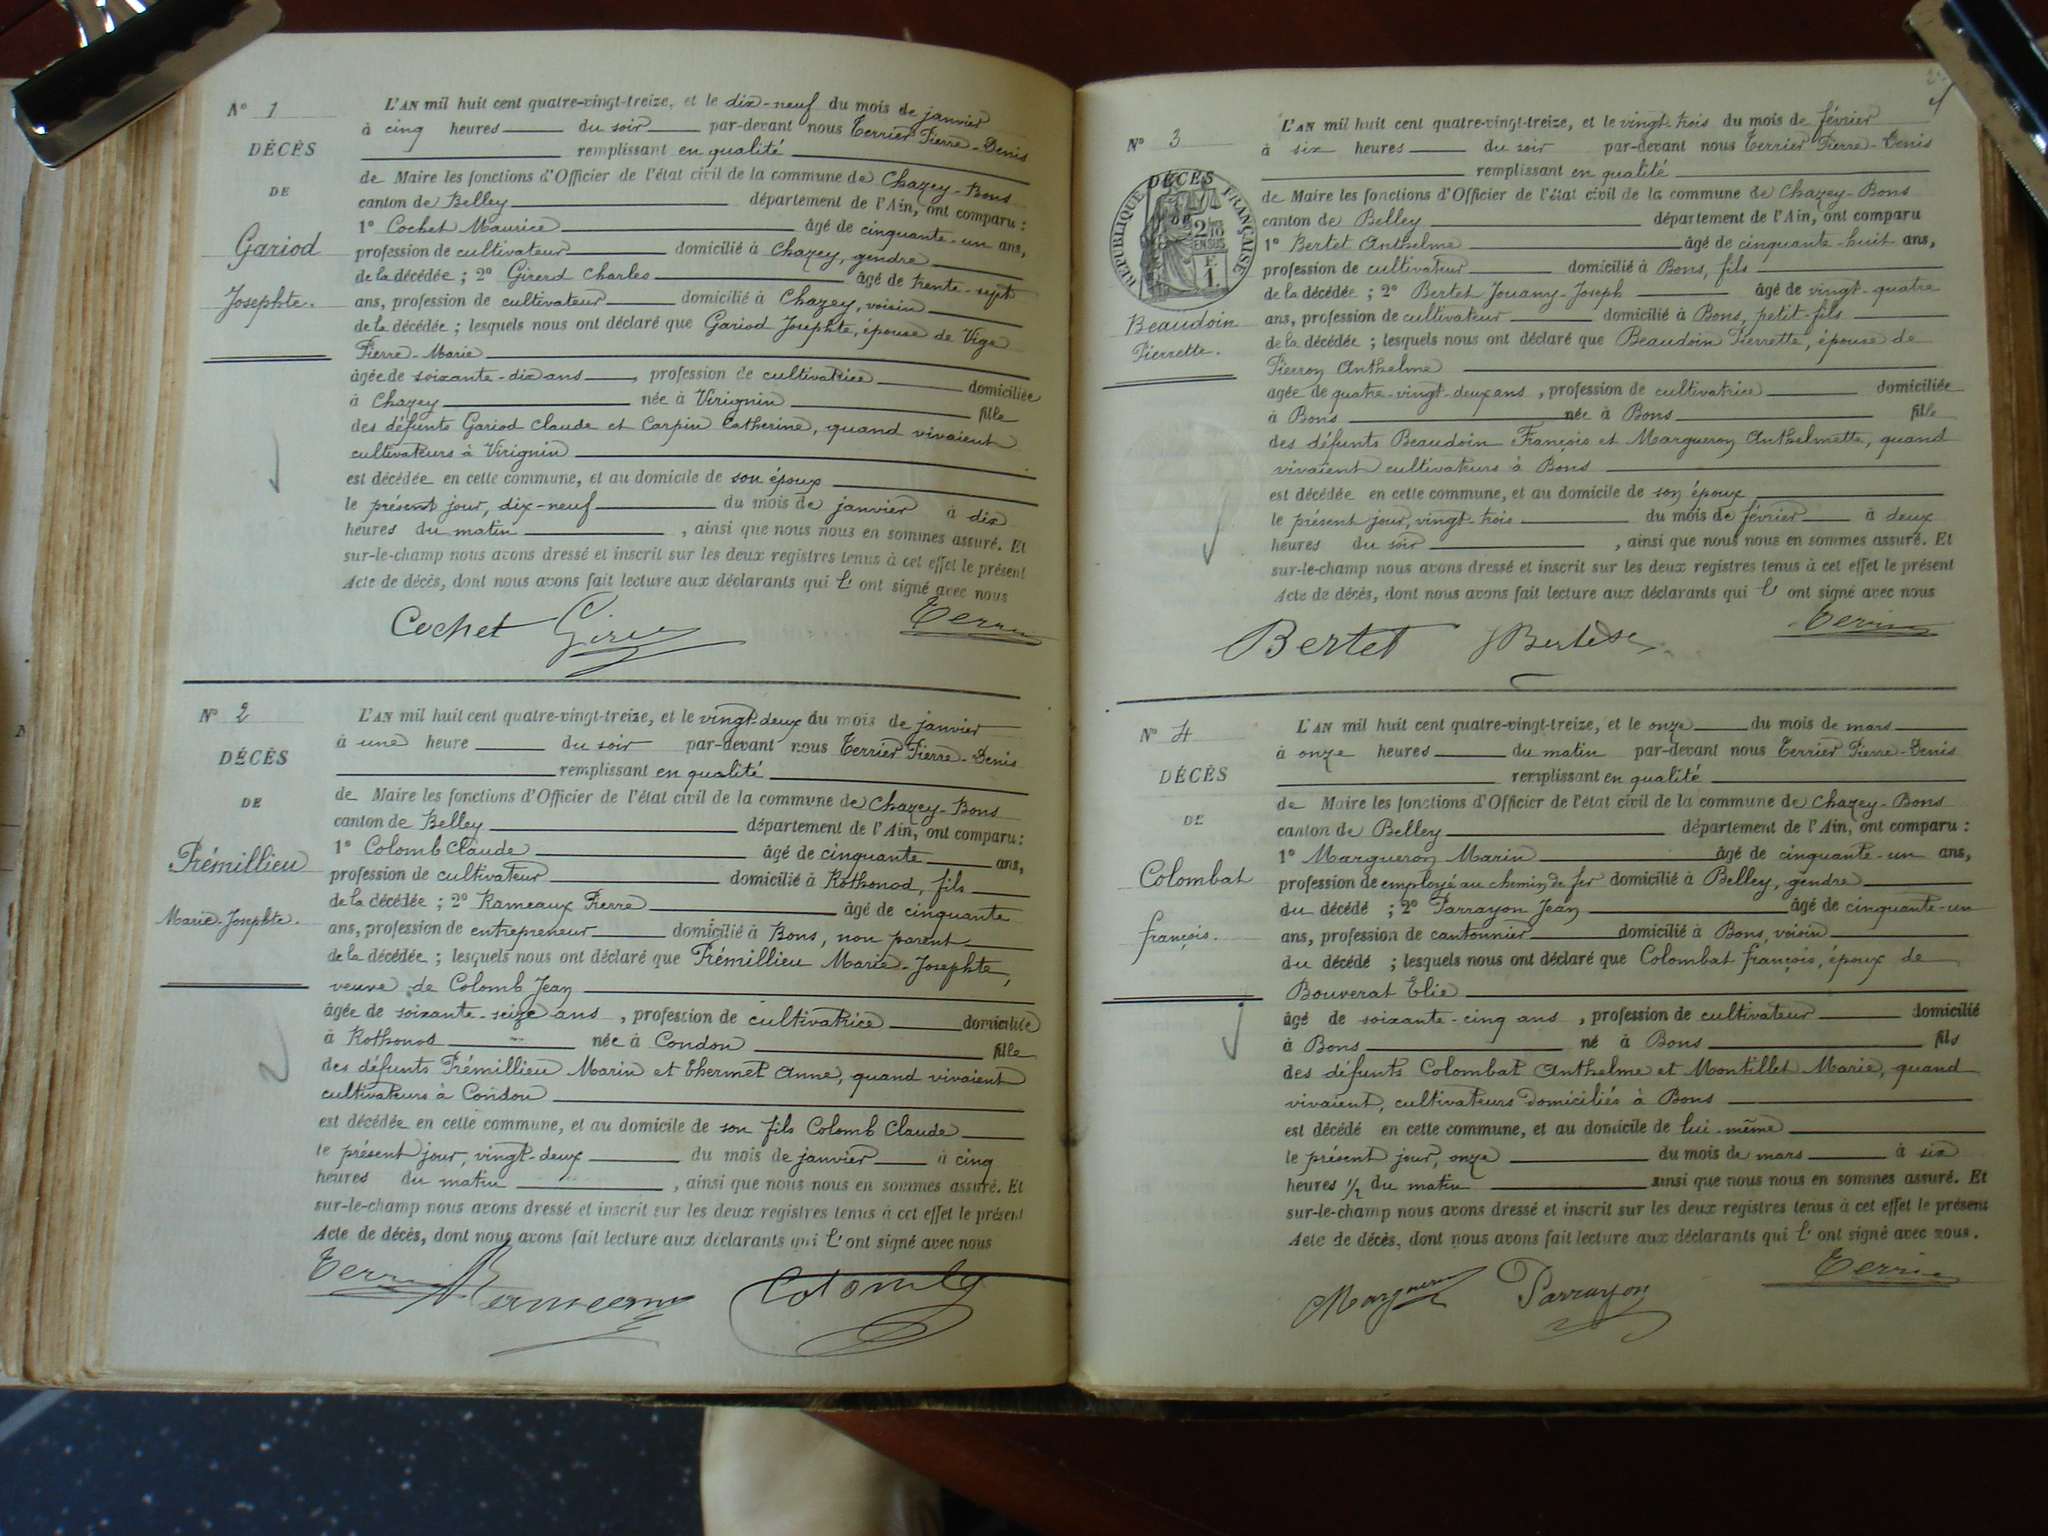 N° 1
DÉCÈS
DE
Gariod
Josephte.
L'AN mil huit cent quatre-vingt-treize, et le dix-neuf du mois de janvier
à cinq heures du soir par-devant nous Terrier Pierre-Denis
remplissant en qualité
de Maire les fonctions d'Officier de l'état civil de la commune de Chazey-Bons
canton de Belley département de l'Ain, ont comparu :
1° Cochet Maurice âgé de cinquante-un ans,
profession de cultivateur domicilié à Chazey, gendre
de la décédée ; 2° Girerd Charles âgé de trente-sept
ans, profession de cultivateur domicilié à Chazey, voisin
de la décédée ; lesquels nous ont déclaré que Gariod Josephte, épouse de Vige
Pierre-Marie
âgée de soixante-dix ans, profession de cultivatrice domiciliée
à Chazey née à Virignin fille
des défunts Gariod Claude et Carpin Catherine, quand vivaient
cultivateurs à Virignin
est décédée en cette commune, et au domicile de son époux
le présent jour, dix-neuf du mois de janvier à dix
heures du matin, ainsi que nous nous en sommes assuré. Et
sur-le-champ nous avons dressé et inscrit sur les deux registres tenus à cet effet le présent
Acte de décès, dont nous avons fait lecture aux déclarants qui l' ont signé avec nous
Cochet Terrier
N° 2
DÉCÈS
DE
Prémillieu
Marie-Josephte.
L'AN mil huit cent quatre-vingt-treize, et le vingt-deux du mois de janvier
à une heure du soir par-devant nous Terrier Pierre-Denis
remplissant en qualité
de Maire les fonctions d'Officier de l'état civil de la commune de Chazey-Bons
canton de Belley département de l'Ain, ont comparu :
1° Colomb Claude âgé de cinquante ans,
profession de cultivateur domicilié à Rothonod, fils
de la décédée ; 2° Rameaux Pierre âgé de cinquante
ans, profession de entrepreneur domicilié à Bons, non parent
de la décédée ; lesquels nous ont déclaré que Prémillieu Marie-Josephte,
veuve de Colomb Jean
âgée de soixante-seize ans, profession de cultivatrice domiciliée
à Rothonod née à Condon fille
des défunts Prémillieu Marin et Thermet Anne, quand vivaient
cultivateurs à Condon
est décédée en cette commune, et au domicile de son fils Colomb Claude
le présent jour, vingt-deux du mois de janvier à cinq
heures du matin, ainsi que nous nous en sommes assuré. Et
sur-le-champ nous avons dressé et inscrit sur les deux registres tenus à cet effet le présent
Acte de décès, dont nous avons fait lecture aux déclarants qui l' ont signé avec nous
Terrier Colomb
N° 3
DÉCÈS
de
RÉPUBLIQUE FRANÇAISE
2/10 EN SUS
F. 1.
Beaudoin
Pierrette.
L'AN mil huit cent quatre-vingt-treize, et le vingt-trois du mois de février
à six heures du soir par-devant nous Terrier Pierre-Denis
remplissant en qualité
de Maire les fonctions d'Officier de l'état civil de la commune de Chazey-Bons
canton de Belley département de l'Ain, ont comparu
1° Bertet Anthelme âgé de cinquante-huit ans,
profession de cultivateur domicilié à Bons, fils
de la décédée ; 2° Bertet Jouany-Joseph âgé de vingt-quatre
ans, profession de cultivateur domicilié à Bons, petit-fils
de la décédée ; lesquels nous ont déclaré que Beaudoin Pierrette, épouse de
Pierron Anthelme
agée de quatre-vingt-deux ans, profession de cultivatrice domiciliée
à Bons née à Bons fille
des défunts Beaudoin François et Margueron Anthelmette, quand
vivaient cultivateurs à Bons
est décédée en cette commune, et au domicile de son époux
le présent jour, vingt-trois du mois de février à deux
heures du soir, ainsi que nous nous en sommes assuré. Et
sur-le-champ nous avons dressé et inscrit sur les deux registres tenus à cet effet le présent
Acte de décès, dont nous avons fait lecture aux déclarants qui l' ont signé avec nous
Bertet Terrier
N° 4
DÉCÈS
DE
Colombat
françois.
L'AN mil huit cent quatre-vingt-treize, et le onze du mois de mars
à onze heures du matin par-devant nous Terrier Pierre-Denis
remplissant en qualité
de Maire les fonctions d'Officier de l'état civil de la commune de Chazey-Bons
canton de Belley département de l'Ain, ont comparu :
1° Margueron Marin âgé de cinquante-un ans,
profession de employé au chemin de fer domicilié à Belley, gendre
du décédé ; 2° Parrayon Jean âgé de cinquante-un
ans, profession de cantonnier domicilié à Bons, voisin
du décédé ; lesquels nous ont déclaré que Colombat françois, époux de
Bouverat Élie
âgé de soixante-cinq ans, profession de cultivateur domicilié
à Bons né à Bons fils
des défunts Colombat Anthelme et Montillet Marie, quand
vivaient, cultivateurs domiciliés à Bons
est décédé en cette commune, et au domicile de lui-même
le présent jour, onze du mois de mars à six
heures 1/2 du matin ainsi que nous nous en sommes assuré. Et
sur-le-champ nous avons dressé et inscrit sur les deux registres tenus à cet effet le présent
Acte de décès, dont nous avons fait lecture aux déclarants qui l' ont signé avec nous.
Margueron Parrayon Terrier